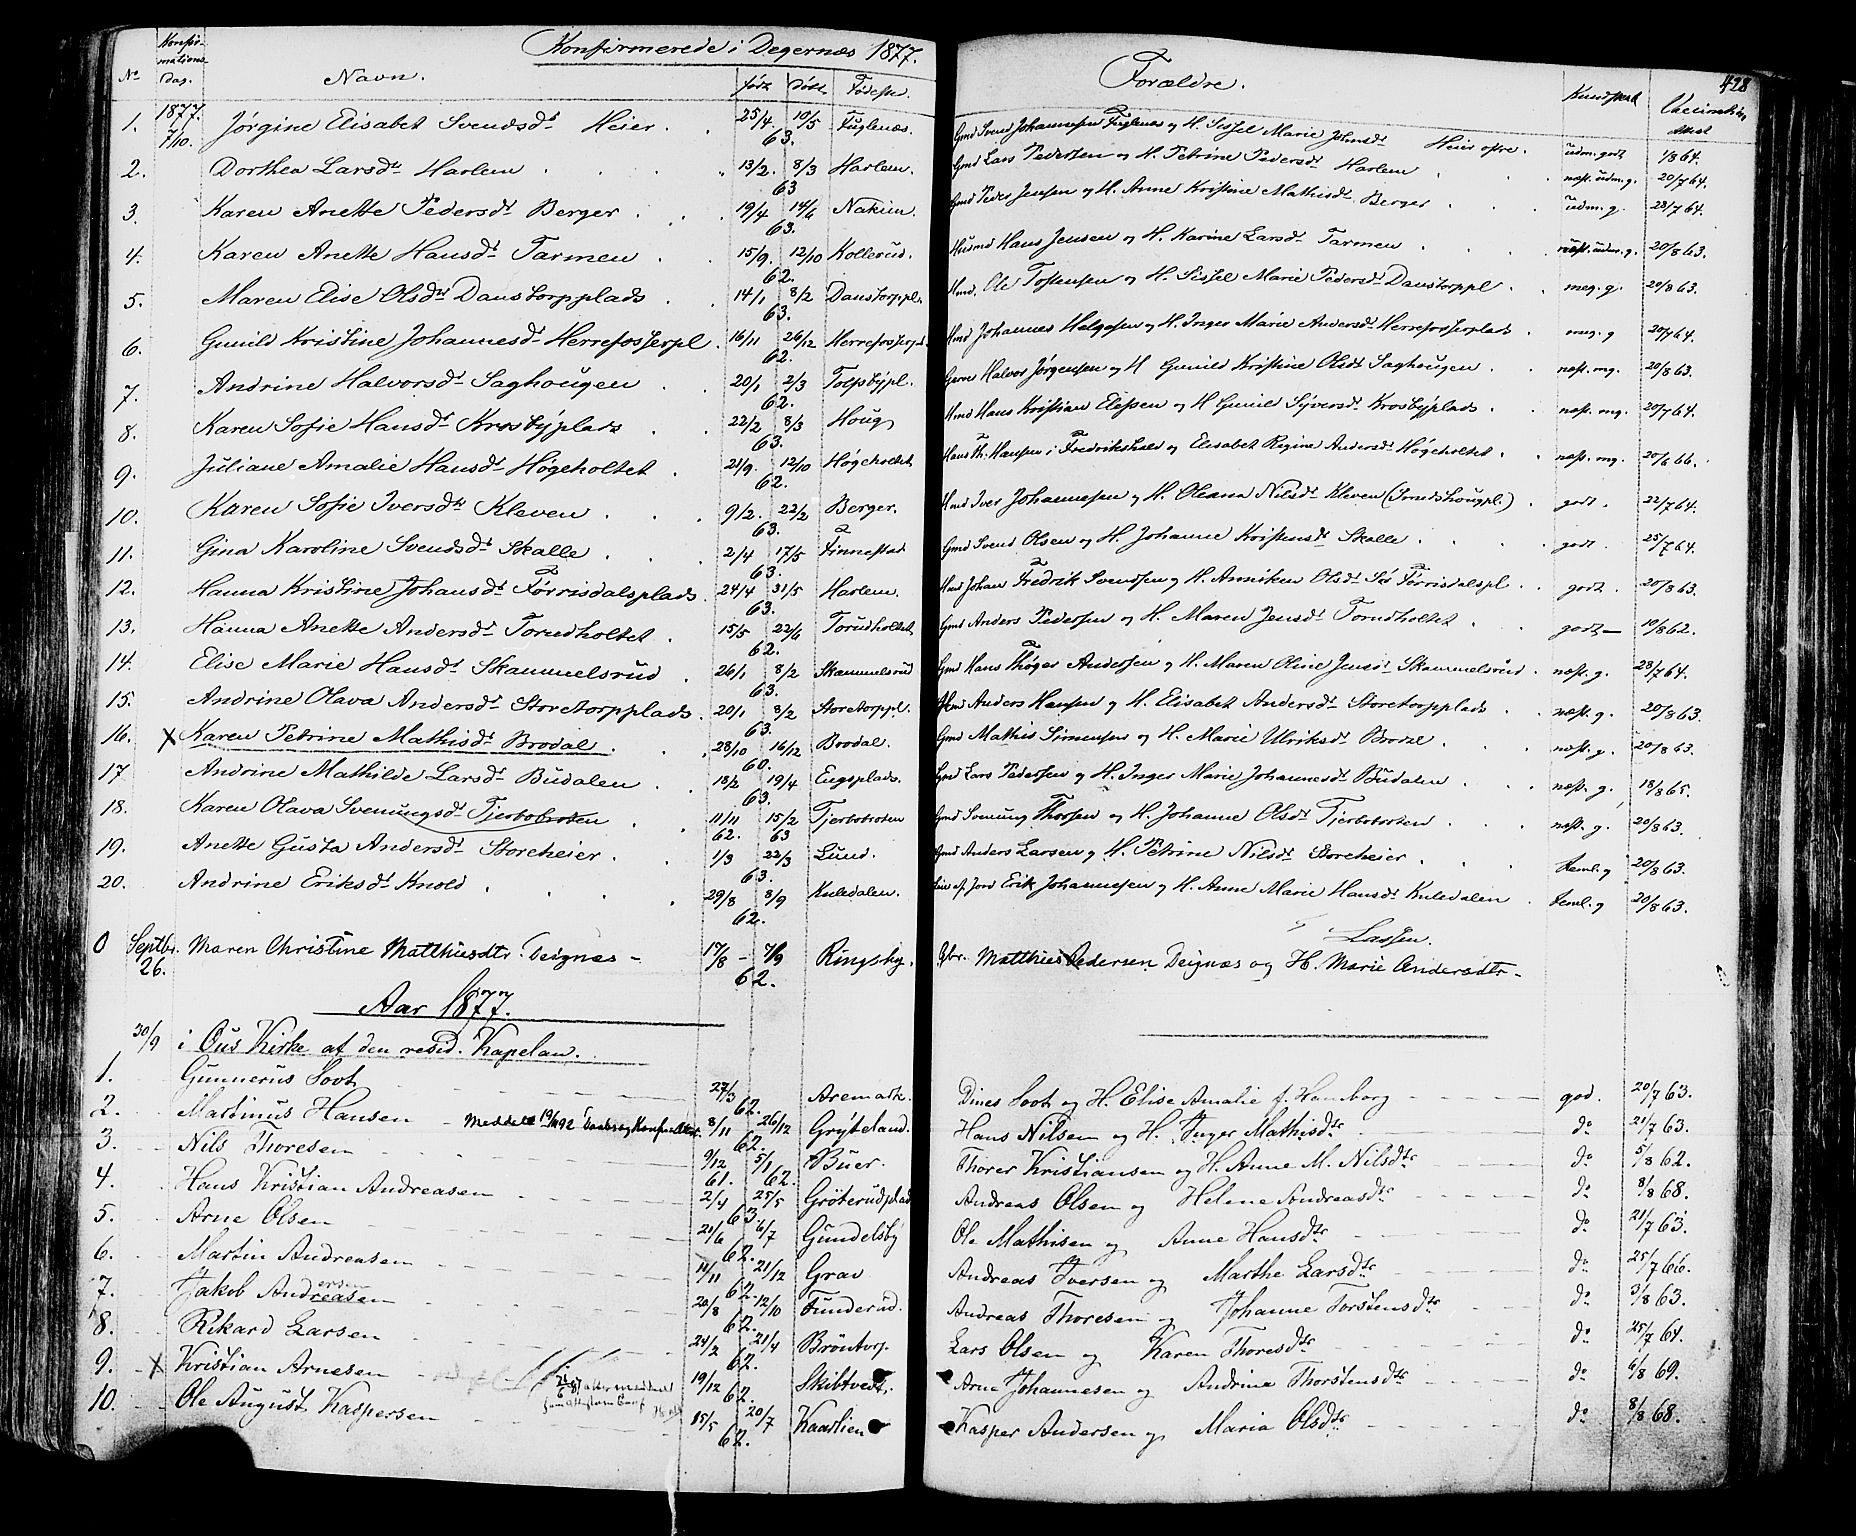 Konfirmerede i Degernæs 1877.
No Konfirmations Dag. Navn. født døbt Fødested. Forældre. Kundskab Vaccination Attest 428
1. 1877. 7/10. Jørgine Elisabet Svendsdt Heier. 25/4 10/5 63. Fuglenæs. Gmd Svend Johannesen Fuglenæs og H. Sissel Marie Johnsdt Heier østre. udm. godt 1/8 64.
2. Dorthea Larsdt Harlem 13/2. 8/3 63 Harlem. Gmd Lars Pedersen og H. Petrine Pedersdt Harlem næst. udm. g. 20/7 64.
3. Karen Anette Pedersdt Berger. 19/4 14/6 63. Nakim. Gmd Peder Jensen og H. Anne Kristine Mathisdt Berger udm. g. 28/7 64.
4. Karen Anette Hansdt Tarmen 15/9. 12/10 62. Kollerud. Husmd Hans Jensen og H. Karine Larsdt Tarmen næst. udm. g. 20/8 63.
5. Maren Elise Olsdtr Danstorpplads 14/1 8/2 63. Danstorppl. Hmd. Ole Tostensen og H. Sissel Marie Pedersdt Danstorppl. meg. g. 20/8 63.
6. Gunild Kristine Johannesdt Herrefosserpl. 16/11 26/12 62. Herrefosserpl. Hmd Johannes Helgesen og H. Inger Marie Andersdt Herrefosserplads mg. g 20/7 64.
7. Andrine Halvorsdt Saghougen 20/1 2/3 62. Tolfsbypl. Gern Halvor Jørgensen og H Gunild Kristine Olsdt Saghougen næst. mg. 20/8 63.
8. Karen Sofie Hansdt Krosbyplads 22/2 8/3 63. Houg Hmd Hans Kristian Elefsen og H Gunild Syversdt Krosbyplads næst. mg. 20/7 64.
9. Juliane Amalie Hansdt Høgeholtet 21/9. 12/10 62. Høgeholtet Hans Th. Hansen i Fredrikshald og Elisabet Regine Andersdt Høgeholtet næst. mg. 20/6 66.
10. Karen Sofie Iversdt Kleven 9/2. 22/2 63. Berger. Hmd Iver Johannesen og H. Oleana Nilsdt Kleven (Smedshougpl.) godt. 22/7 64.
11. Gina Karoline Svendsdt Skalle 2/4 17/5 63. Finnestad Gmd Svend Olsen og H. Johanne Kristensdt Skalle godt. 25/7 64.
12. Hanna Kristine Johansdt Førrisdalsplads. 24/4 31/5 63. Harlem. Hmd Johan Fredrik Svensen og H. Anniken Olsdt Sør Førrisdalspl. godt. 20/8 63.
13. Hanna Anette Andersdt Torudholtet 15/5 22/6 62. Torudholtet Gmd Anders Pedersen og H. Maren Jensdt Torudholtet godt 10/8 62.
14. Elise Marie Hansdt Skammelsrud 26/1 8/2 63. Skammelsrud Gmd Hans Thøger Andersen og H. Maren Oline Jensdt Skammelsrud næst. g. 28/7 64.
15. Andrine Olava Andersdt Storetorpplads. 20/1 8/2 63. Storetorppl. Hmd Anders Hansen og H. Elisabet Andersdt Storetorpplads næst. g. 20/8 63.
16. X Karen Petrine Mathisdt Brodal 28/10 16/12 60. Brodal. Gmd Mathis Simensen og H. Marie Ulriksdt Brodal næst. g. 20/8 63.
17 Andrine Mathilde Larsdt Budalen 18/2 19/4 63. Engsplads. Gmd Lars Pedersen og H. Inger Marie Johannesdt Budalen næst. g. 18/8 65.
18. Karen Olava Svenungsdt Tjerbobroten 11/11 62. 15/2 63 Tjerbobroten Gmd Svenung Thorsen og H. Johanne Olsdt Tjerbobroten næst. g. 20/8 63.
19. Anette Gusta Andersdt Storeheier. 1/3 22/3 63. Lund. Gmd Anders Larsen og H. Petrine Nilsdt Storeheier teml. g 20/8 63.
20. Andrine Eriksdt Knold 29/8 8/9 62. Kuledalen. Erik Johannesen og H. Anne Marie Hansdt Kuledalen teml. g 20/8 63.
Lassen.
0 Septbr. 26. Maren Christine Matthiesdtr. Deignæs 17/8 - 7/9 62. Ringsby. Gbr. Matthies Pedersen Deignæs og H. Marie Andersdtr
Aar 1877.
30/9 i Øus Kirke af den resid. Kapelan.
1. Gunnerus Soot 27/3 62. Aremark. Dines Soot og H. Elise Amalie f. Hamborg god. 20/7 63.
2. Martinus Hansen Meddelt 19/4 92 8/11 26/12 62. Gryteland. Hans Nilsen og H. Inger Mathisdtr do 21/7 63.
3. Nils Thoresen 9/12 61. 5/1 62. Buer. Thorer Kristiansen og H. Anne M. Nilsdtr do 5/8 62.
4. Hans Kristian Andreasen 2/4 25/5 63. Grøterudplads Andreas Olsen og Helene Andreasdtr do 8/8 68.
5. Arne Olsen 20/6 6/7 62. Gundelsby Ole Mathisen og Anne Hansdtr do 21/7 63.
6. Martin Andreasen 11/11 21/12 62. Grav Andreas Iversen og Marthe Larsdtr do 25/7 66.
7. Jakob Andreasen ersen 20/8 12/10 62. Funderud. Andreas Thoresen og Johanne Torstensdtr do 3/8 63.
8. Rikard Larsen 24/2 21/4 62. Brøntorp. Lars Olsen og Karen Thoresdtr do 25/7 64.
9. X Kristian Arnesen 19/12 62. Skibtvedt. Arne Johannesen og Andrina Thorstensdtr do 6/8 69.
10. Ole August Kaspersen 15/5 20/7 62. Kaaslien Kasper Andersen og Maria Olsdtr do 8/8 68.